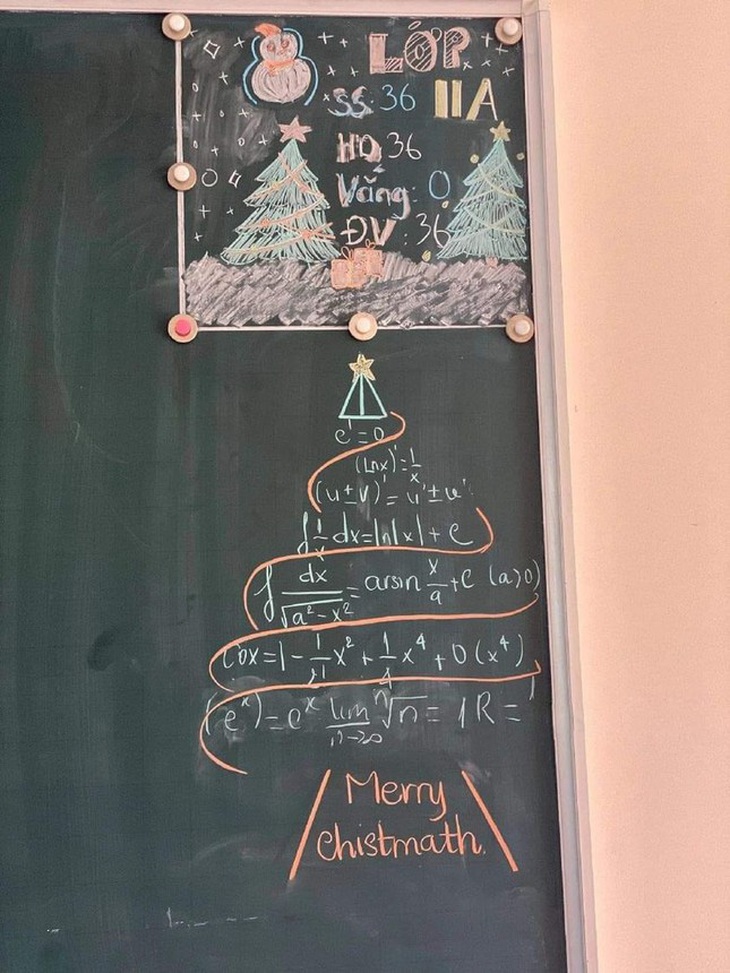 LỚP
SS: 36 11A
HD 36
Vắng: 0
ĐV: 36
c' = 0
(lnx)' = 1/x
(u±v)' = u'±v'
∫ 1/x dx = ln|x| + C
∫ dx/√(a²-x²) = arsin x/a + C (a>0)
Cox = 1 - 1/2! x² + 1/4 x⁴ + O(x⁴)
(eˣ) = eˣ lim n→∞ ⁿ√n = 1 R =
Merry
Chistmath.